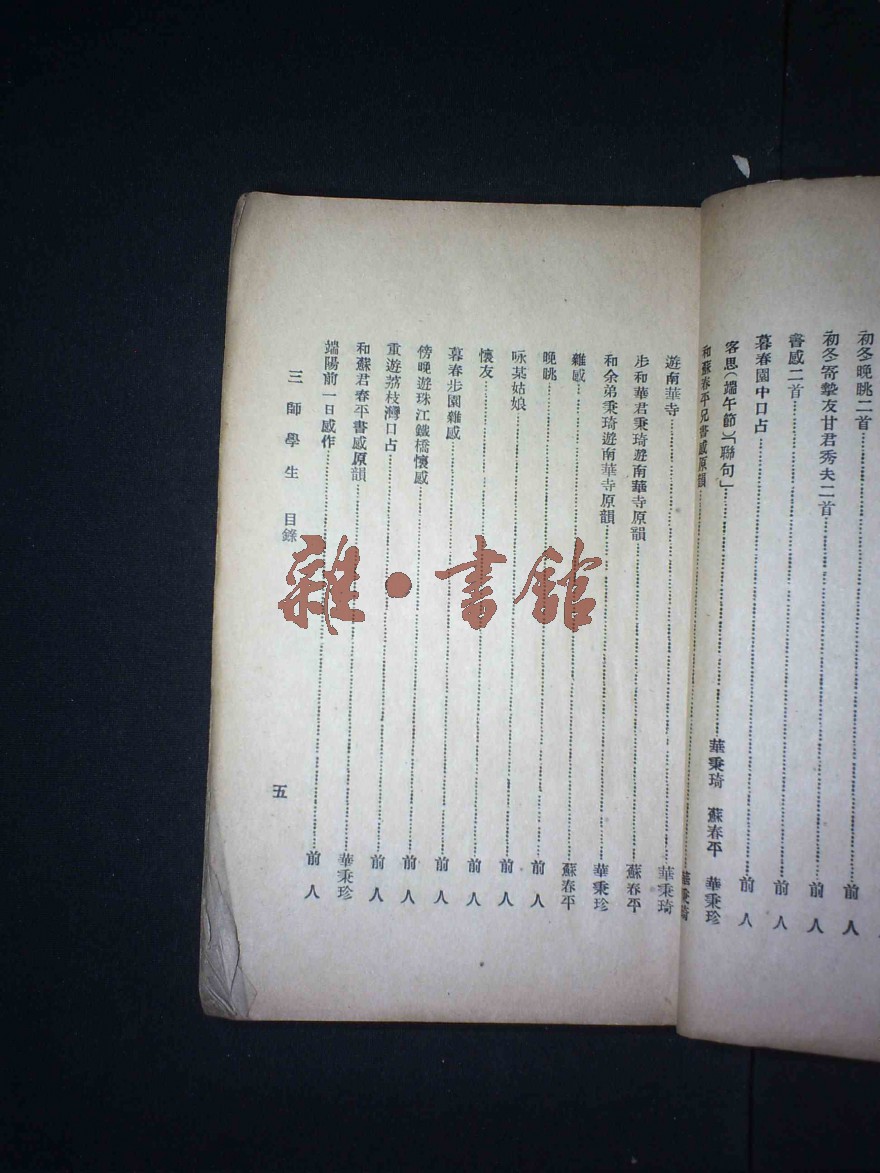 初冬晚眺二首 前人
初冬寄摯友甘君秀夫二首 前人
書感二首 前人
暮春園中口占 前人
客思(端午節)「聯句」 華秉琦 蘇春平 華秉珍
和蘇春平兄書感原韻 華秉琦
遊南華寺 華秉琦
步和華君秉琦遊南華寺原韻 蘇春平
和余弟秉琦遊南華寺原韻 華秉珍
雜感 蘇春平
晚眺 前人
咏某姑娘 前人
懷友 前人
暮春步園雜感 前人
傍晚遊珠江鐵橋懷感 前人
重遊荔枝灣口占 前人
和蘇君春平書感原韻 華秉珍
端陽前一日感作 前人
三師學生 目錄 五
雜·書館